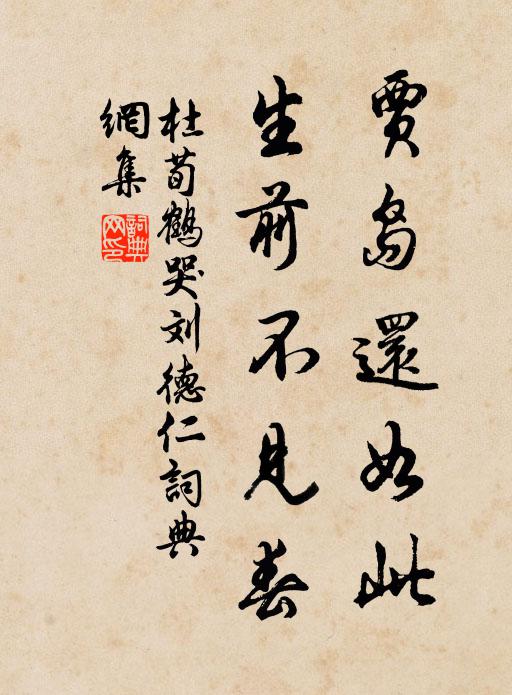 賈島還如此
生前不見春
杜荀鶴哭刘德仁詞典
網集
詞典網印